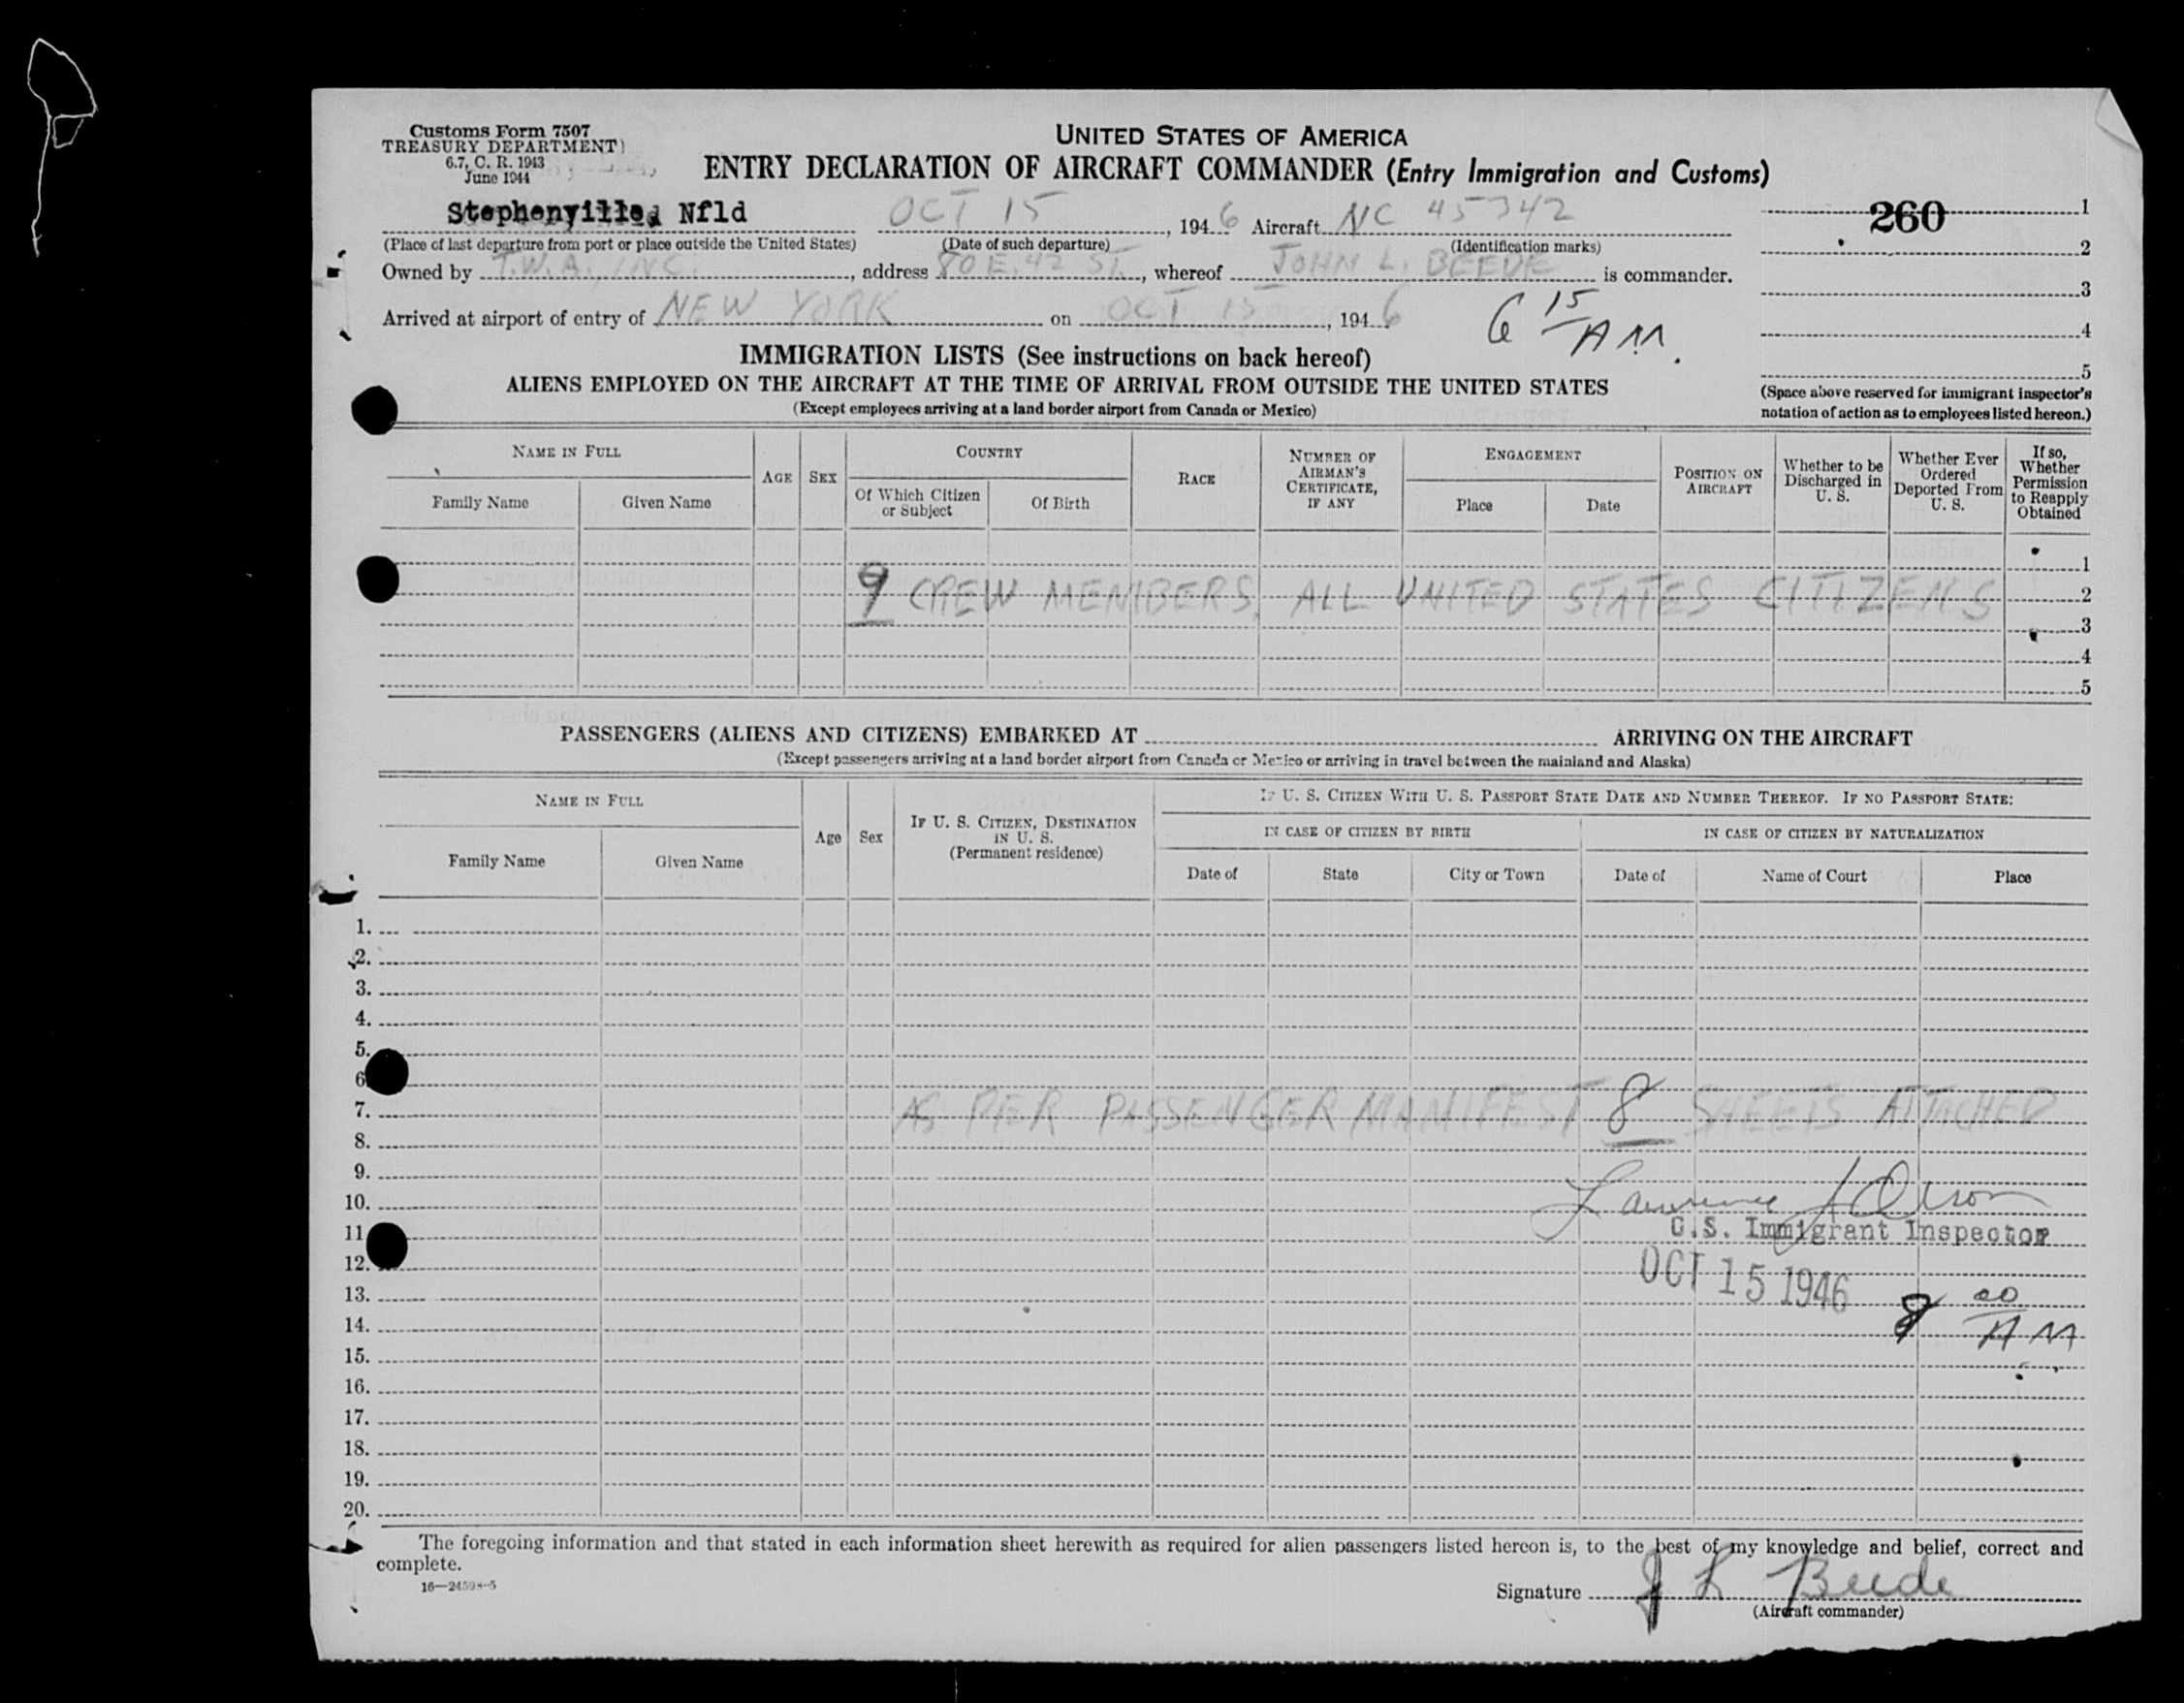 Customs Form 7507
TREASURY DEPARTMENT
6.7, C. R. 1943
June 1944
UNITED STATES OF AMERICA
ENTRY DECLARATION OF AIRCRAFT COMMANDER (Entry Immigration and Customs)
Stephenville, Nfld OCT 15, 1946 Aircraft NC 45342
(Place of last departure from port or place outside the United States) (Date of such departure) (Identification marks)
260
1
2
3
4
5
Owned by T.W.A., INC., address 80 E. 42 ST., whereof JOHN L. BEEDE is commander.
Arrived at airport of entry of NEW YORK on OCT 15, 1946 6 15 AM.
(Space above reserved for immigrant inspector's
notation of action as to employees listed hereon.)
IMMIGRATION LISTS (See instructions on back hereof)
ALIENS EMPLOYED ON THE AIRCRAFT AT THE TIME OF ARRIVAL FROM OUTSIDE THE UNITED STATES
(Except employees arriving at a land border airport from Canada or Mexico)
NAME IN FULL
Family Name Given Name
AGE SEX
COUNTRY
Of Which Citizen or Subject Of Birth
RACE
NUMBER OF AIRMAN'S CERTIFICATE, IF ANY
ENGAGEMENT
Place Date
POSITION ON AIRCRAFT
Whether to be Discharged in U. S.
Whether Ever Ordered Deported From U. S.
If so, Whether Permission to Reapply Obtained
1
9 CREW MEMBERS ALL UNITED STATES CITIZENS 2
3
4
5
PASSENGERS (ALIENS AND CITIZENS) EMBARKED AT ARRIVING ON THE AIRCRAFT
(Except passengers arriving at a land border airport from Canada or Mexico or arriving in travel between the mainland and Alaska)
NAME IN FULL
Family Name Given Name
Age Sex
IF U. S. CITIZEN, DESTINATION IN U. S.
(Permanent residence)
IF U. S. CITIZEN WITH U. S. PASSPORT STATE DATE AND NUMBER THEREOF. IF NO PASSPORT STATE:
IN CASE OF CITIZEN BY BIRTH IN CASE OF CITIZEN BY NATURALIZATION
Date of State City or Town Date of Name of Court Place
1.
2.
3.
4.
5.
6
7. AS PER PASSENGER MANIFEST 8 SHEETS ATTACHED
8.
9.
10. Lawrence J Olson
11 U.S. Immigrant Inspector
12. OCT 15 1946
13. 8 00 AM
14.
15.
16.
17.
18.
19.
20.
The foregoing information and that stated in each information sheet herewith as required for alien passengers listed hereon is, to the best of my knowledge and belief, correct and
complete.
16—24598-5
Signature J L Beede
(Aircraft commander)